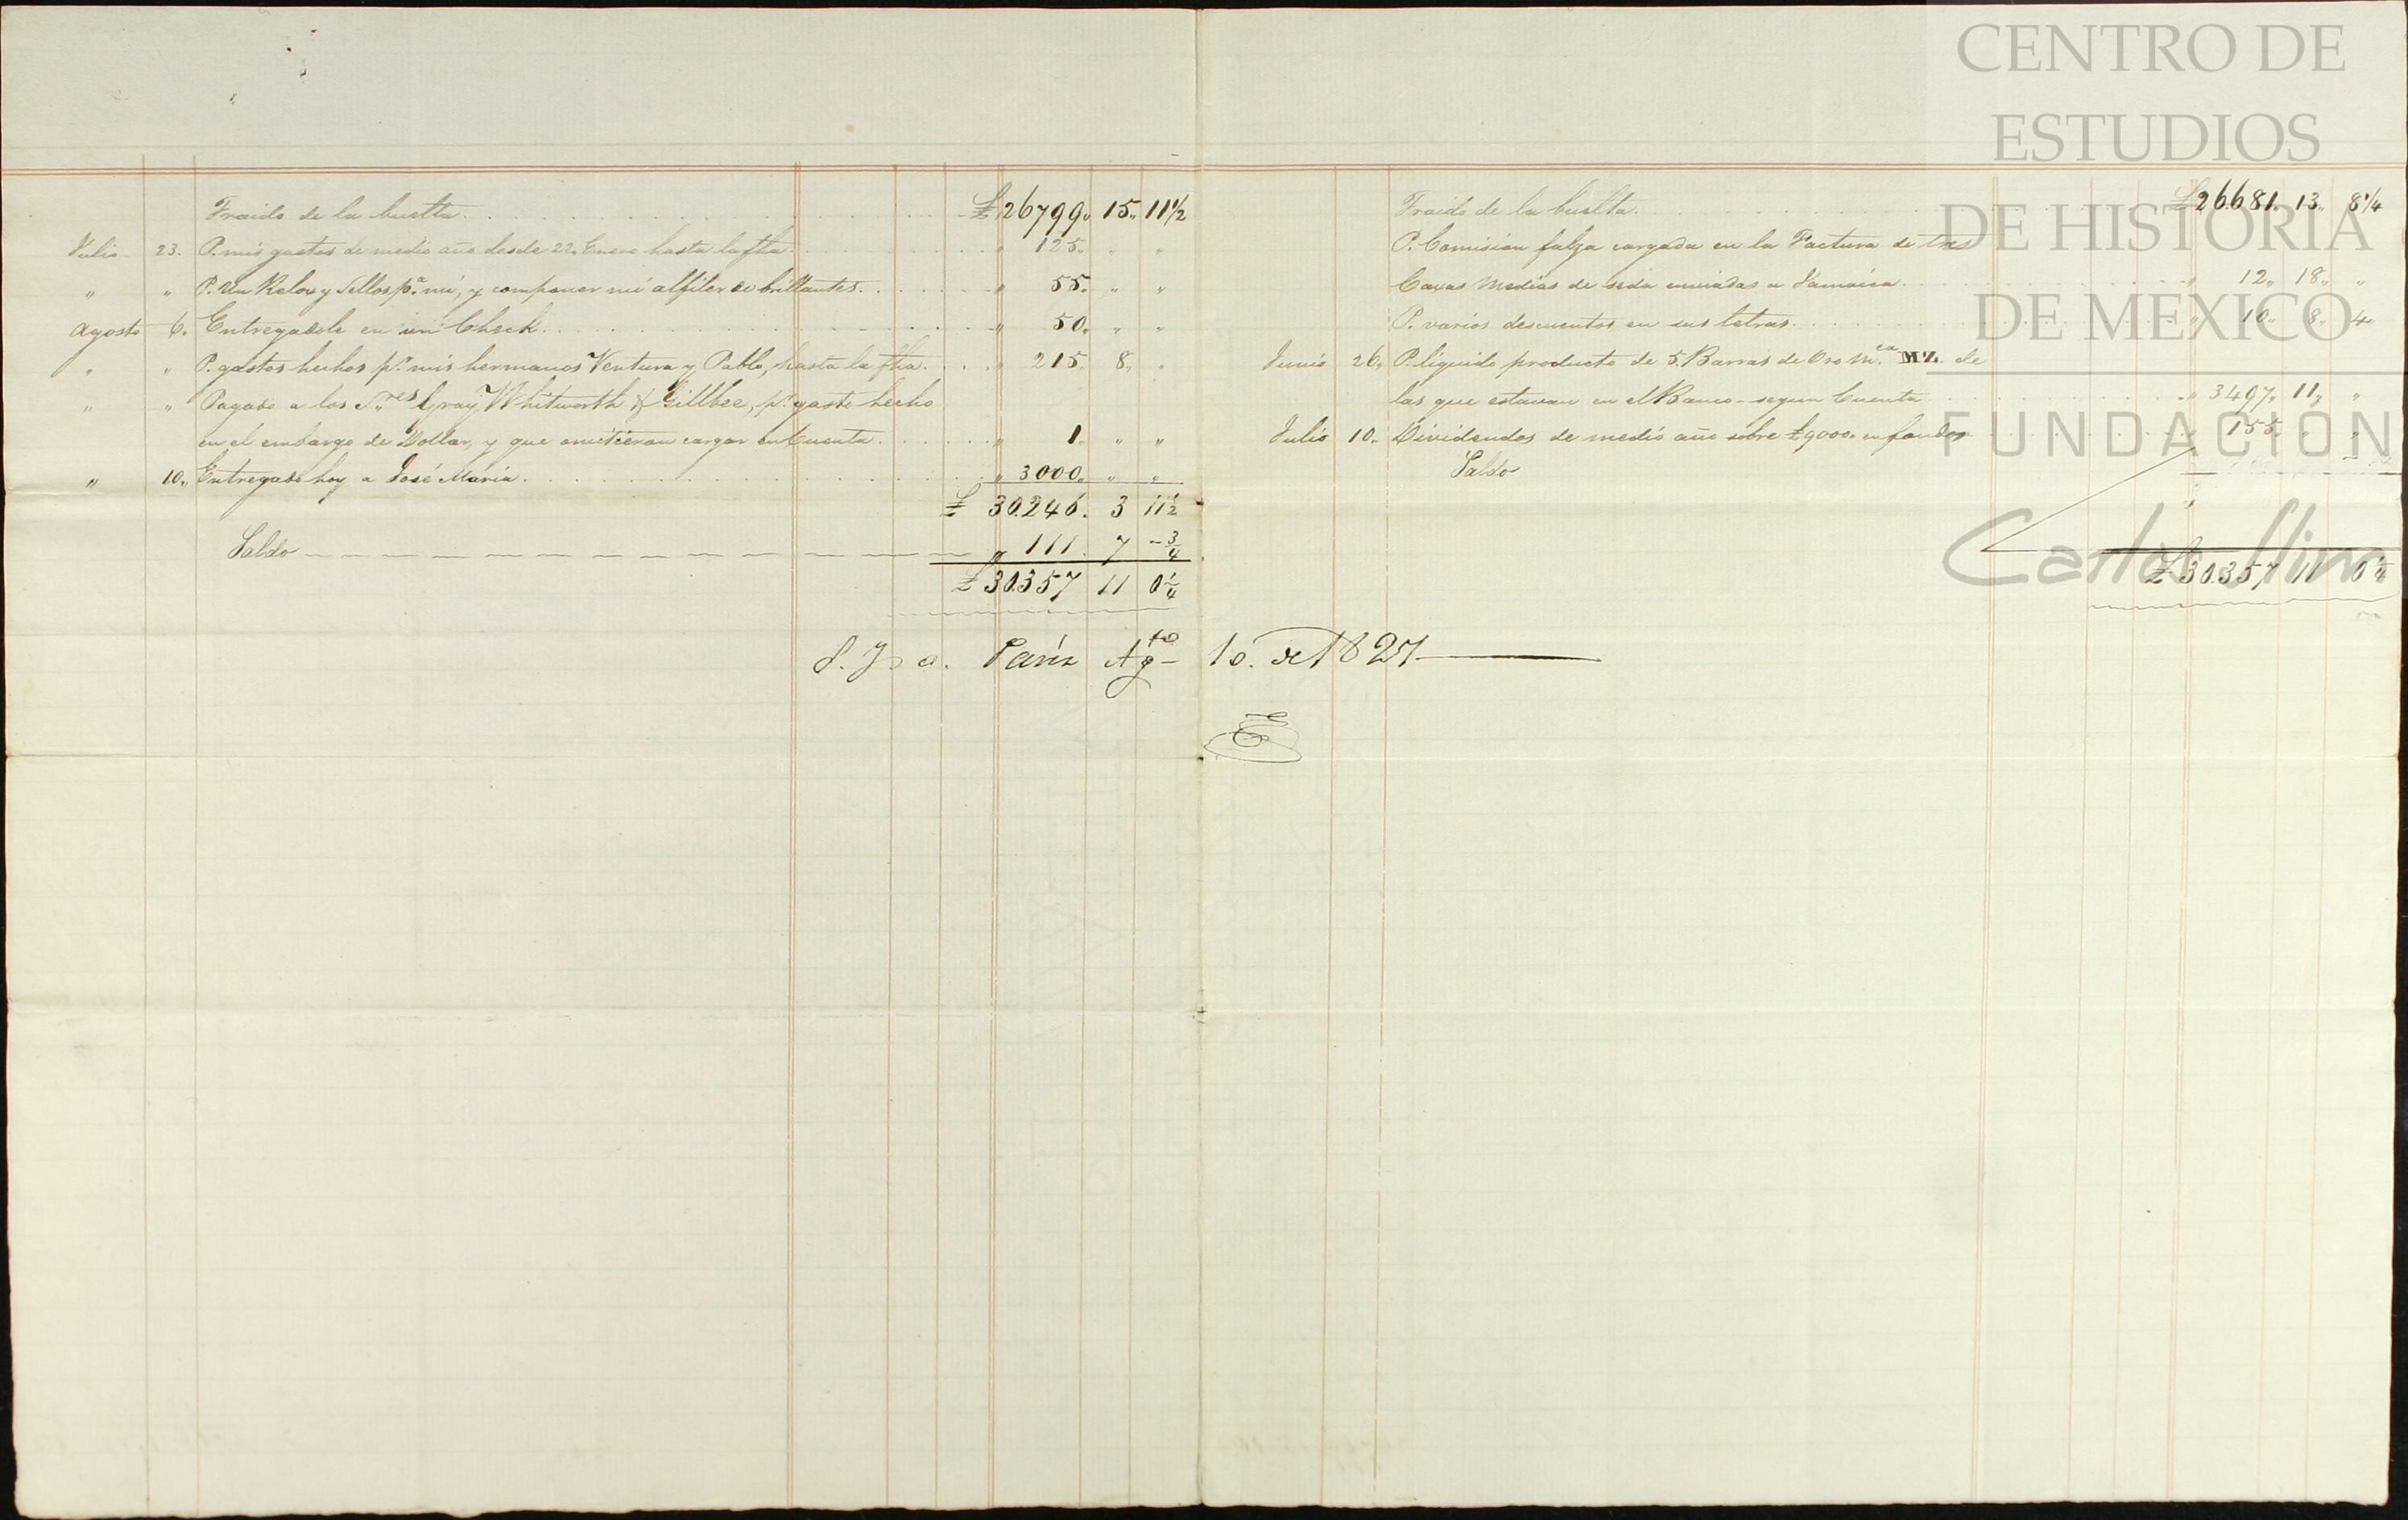 Traido de la buelta £ 26799,, 15,, 11 1/2
Julio 23. P. mis gastos de medio año desde 22. Enero hasta la fha. " 125,, " "
" " P. un Relox y Sellos pa. mi, y componer mi alfiler de brillantes. " 55,, " "
Agosto 6. Entregadole en un Check. " 50,, " "
" " P. gastos hechos pr. mis hermanos Ventura y Pablo, hasta la fha. " 215 8,, "
" " Pagado a los Sres Gray Whitworth & Gillbee, pr. gasto hecho
en el embargo de Dollar, y que omitieron cargar en Cuenta. " 1. " "
" 10,, Entregado hoy a José Maria. " 3000,, " "
£ 30.246. 3 11 1/2
Saldo " 111. 7 - 3/4
£ 30.357 11 0 1/4
Traido de la buelta. £ 26.681,, 13,, 8 1/4
P. Comision falza cargada en la Factura de tres
Caxas Medias de seda enviadas a Jamaica " 12,, 18,, "
P. varios descuentos en sus letras. " 10,, 8,, 4
Junio 26,, P. liquido producto de 5. Barras de Oro M.ca MZ. de
las que estavan en el Banco - segun Cuenta " 3497,, 11,, "
Julio 10,, Dividendos de medio año sobre £9000,, en fondos " 155,, " "
Saldo
£ 30.357 11 0 1/4
Paris Agto 10. de 1827
CENTRO DE
ESTUDIOS
DE HISTORIA
DE MEXICO
FUNDACIÓN
Carlos Slim